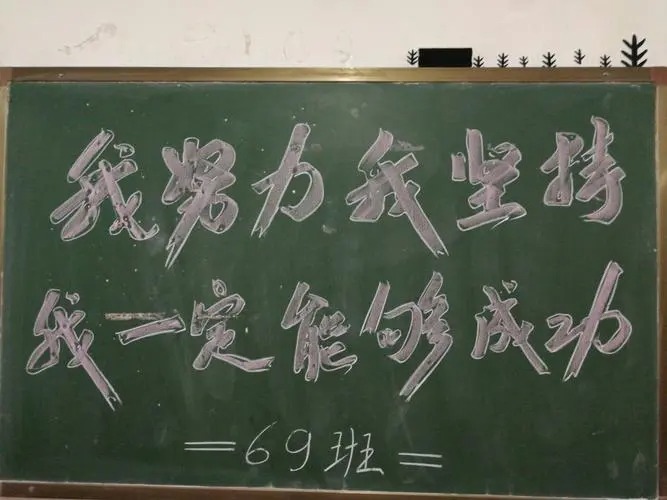 我努力我坚持
我一定能够成功
=69班=